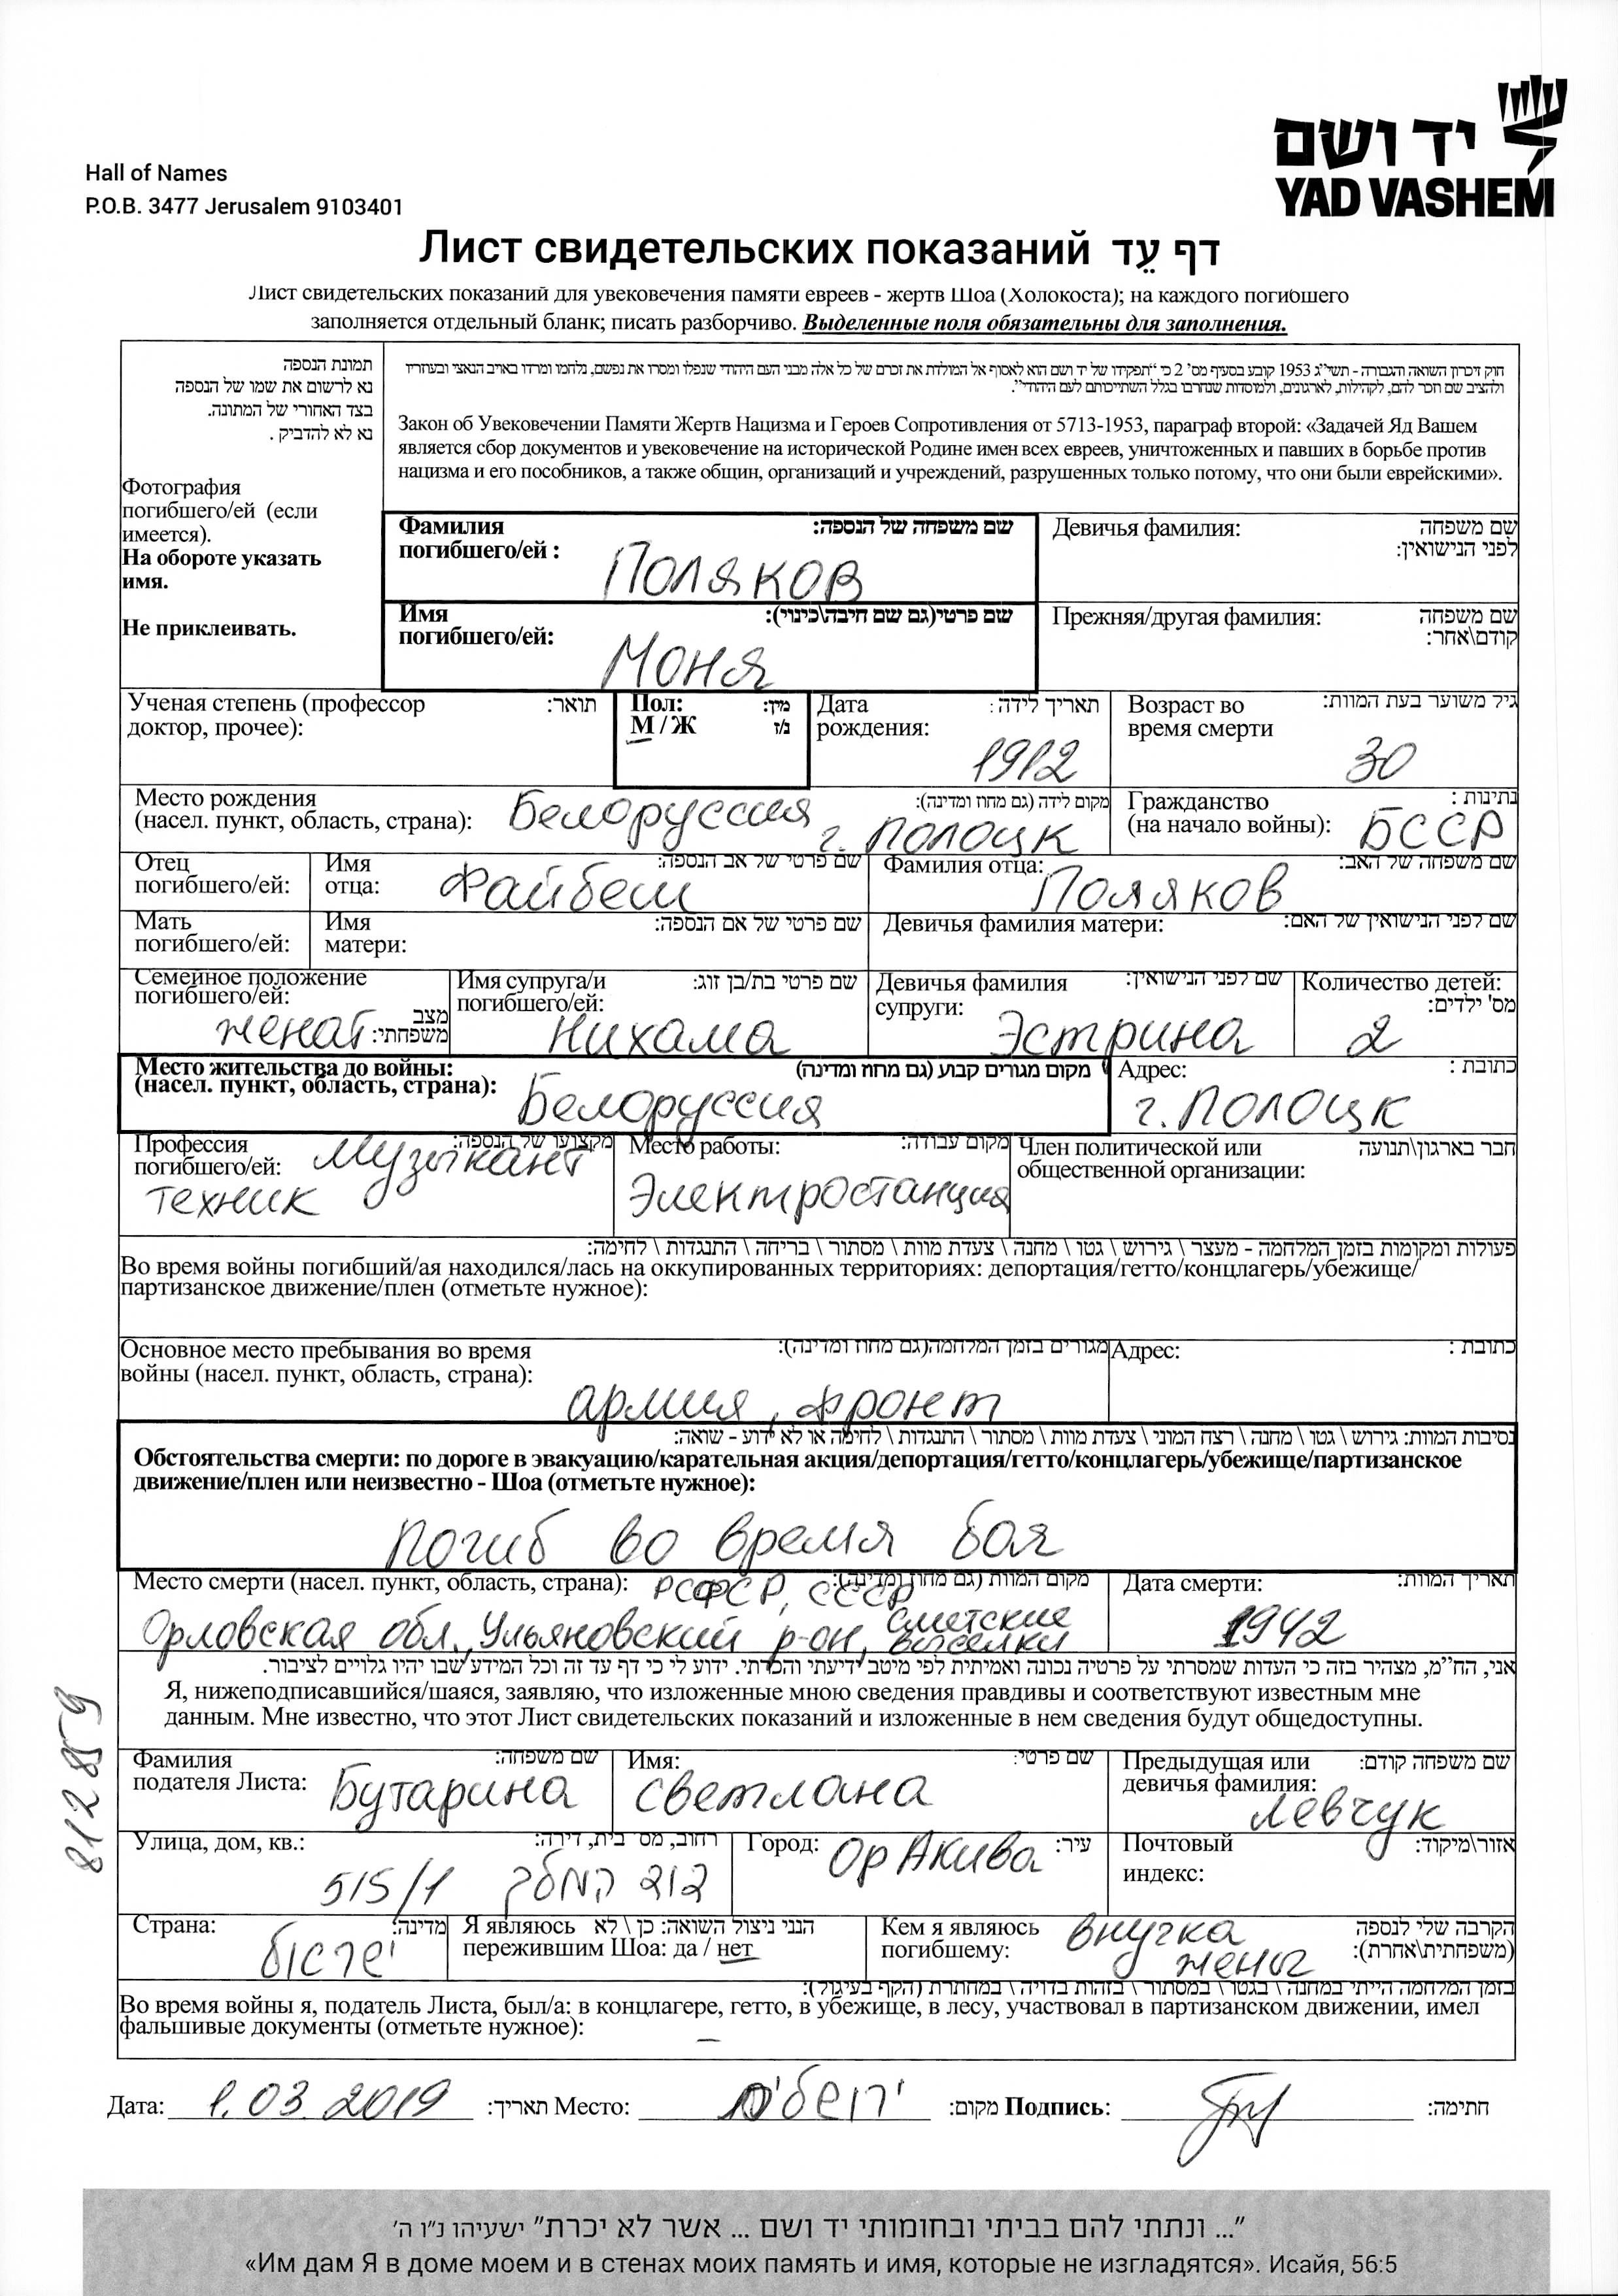 יד ושם
YAD VASHEM
Hall of Names
P.O.B. 3477 Jerusalem 9103401
Лист свидетельских показаний דף עֵד
Лист свидетельских показаний для увековечения памяти евреев - жертв Шоа (Холокоста); на каждого погибшего
заполняется отдельный бланк; писать разборчиво. Выделенные поля обязательны для заполнения.
תמונת הנספה
נא לרשום את שמו של הנספה
בצד האחורי של המתונה.
נא לא להדביק .
Фотография
погибшего/ей (если
имеется).
На обороте указать
имя.
Не приклеивать.
חוק זיכרון השואה והגבורה - תשי"ג 1953 קובע בסעיף מס' 2 כי "תפקידו של יד ושם הוא לאסוף אל המולדת את זכרם של כל אלה מבני העם היהודי שנפלו ומסרו את נפשם, נלחמו ומרדו באויב הנאצי ובעוזריו
ולהציב שם וזכר להם, לקהילות, לארגונים, ולמוסדות שנחרבו בגלל השתייכותם לעם היהודי".
Закон об Увековечении Памяти Жертв Нацизма и Героев Сопротивления от 5713-1953, параграф второй: «Задачей Яд Вашем
является сбор документов и увековечение на исторической Родине имен всех евреев, уничтоженных и павших в борьбе против
нацизма и его пособников, а также общин, организаций и учреждений, разрушенных только потому, что они были еврейскими».
Фамилия погибшего/ей : שם משפחה של הנספה:
Поляков
Девичья фамилия: שם משפחה לפני הנישואין:
Имя погибшего/ей: שם פרטי(גם שם חיבה\כינוי):
Моня
Прежняя/другая фамилия: שם משפחה קודם\אחר:
Ученая степень (профессор доктор, прочее): תואר:
Пол: מין:
М / Ж ז/נ
Дата рождения: תאריך לידה :
1912
Возраст во время смерти גיל משוער בעת המוות:
30
Место рождения (насел. пункт, область, страна): מקום לידה (גם מחוז ומדינה):
Белоруссия г. Полоцк
Гражданство (на начало войны): נתינות :
БССР
Отец погибшего/ей:
Имя отца: שם פרטי של אב הנספה:
Файбеш
Фамилия отца: שם משפחה של האב:
Поляков
Мать погибшего/ей:
Имя матери: שם פרטי של אם הנספה:
Девичья фамилия матери: שם לפני הנישואין של האם:
Семейное положение погибшего/ей: מצב משפחתי:
женат
Имя супруга/и погибшего/ей: שם פרטי בת/בן זוג:
Нихама
Девичья фамилия супруги: שם לפני הנישואין:
Эстрина
Количество детей: מס' ילדים:
2
Место жительства до войны: (насел. пункт, область, страна): מקום מגורים קבוע (גם מחוז ומדינה)
Белоруссия
Адрес: כתובת :
г. Полоцк
Профессия погибшего/ей: מקצועו של הנספה:
Музыкант
техник
Место работы: מקום עבודה:
Электростанция
Член политической или общественной организации: חבר בארגון\תנועה
פעולות ומקומות בזמן המלחמה - מעצר \ גירוש \ גטו \ מחנה \ צעדת מוות \ מסתור \ בריחה \ התנגדות \ לחימה:
Во время войны погибший/ая находился/лась на оккупированных территориях: депортация/гетто/концлагерь/убежище/
партизанское движение/плен (отметьте нужное):
Основное место пребывания во время войны (насел. пункт, область, страна): מגורים בזמן המלחמה(גם מחוז ומדינה):
армия, фронт
Адрес: כתובת :
נסיבות המוות: גירוש \ גטו \ מחנה \ רצח המוני \ צעדת מוות \ מסתור \ התנגדות \ לחימה או לא ידוע - שואה:
Обстоятельства смерти: по дороге в эвакуацию/карательная акция/депортация/гетто/концлагерь/убежище/партизанское
движение/плен или неизвестно - Шоа (отметьте нужное):
Погиб во время боя
Место смерти (насел. пункт, область, страна): מקום המוות (גם מחוז ומדינה):
РСФСР, СССР
Орловская обл., Ульяновский р-он, Сметские выселки
Дата смерти: תאריך המוות:
1942
אני, הח"מ, מצהיר בזה כי העדות שמסרתי על פרטיה נכונה ואמיתית לפי מיטב ידיעתי והכרתי. ידוע לי כי דף עד זה וכל המידע שבו יהיו גלויים לציבור.
Я, нижеподписавшийся/шаяся, заявляю, что изложенные мною сведения правдивы и соответствуют известным мне
данным. Мне известно, что этот Лист свидетельских показаний и изложенные в нем сведения будут общедоступны.
8112859
Фамилия подателя Листа: שם משפחה:
Бутарина
Имя: שם פרטי:
Светлана
Предыдущая или девичья фамилия: שם משפחה קודם:
Левчук
Улица, дом, кв.: רחוב, מס בית, דירה:
דוד המלך 515/1
Город: עיר:
Ор Акива
Почтовый индекс: אזור\מיקוד:
Страна: מדינה:
ישראל
Я являюсь пережившим Шоа: да / нет הנני ניצול השואה: כן \ לא
Кем я являюсь погибшему: הקרבה שלי לנספה (משפחתית\אחרת):
внучка жены
בזמן המלחמה הייתי במחנה \ בגטו \ במסתור \ בזהות בדויה \ במחתרת (הקף בעיגול):
Во время войны я, податель Листа, был/а: в концлагере, гетто, в убежище, в лесу, участвовал в партизанском движении, имел
фальшивые документы (отметьте нужное): –
Дата: 1.03.2019 תאריך: Место: ירושלים מקום: Подпись: חתימה:
"... ונתתי להם בביתי ובחומותי יד ושם ... אשר לא יכרת" ישעיהו נ"ו ה'
«Им дам Я в доме моем и в стенах моих память и имя, которые не изгладятся». Исайя, 56:5